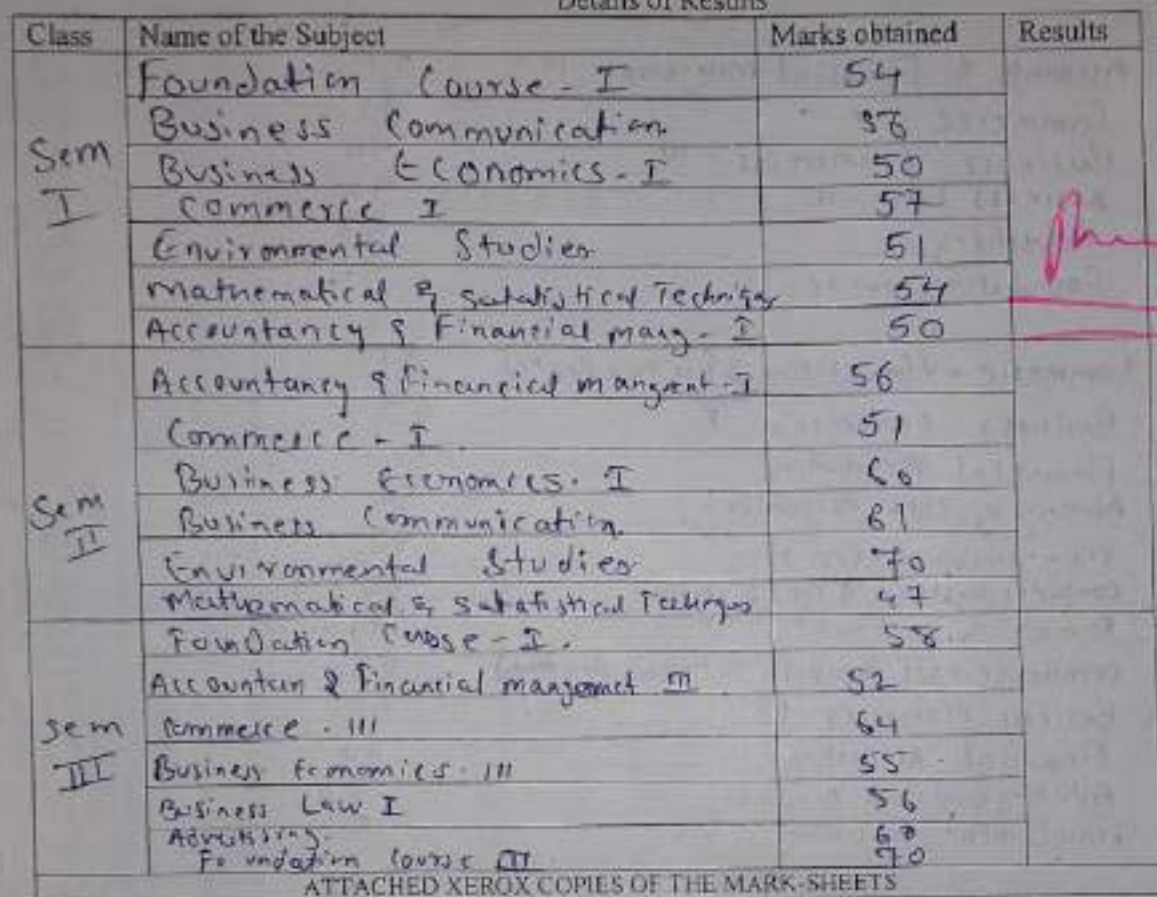 Details of Results
Class Name of the Subject Marks obtained Results
Sem I
Foundation Course - I 54
Business Communication 56
Business Economics - I 50
Commerce I 57
Environmental Studies 51
Mathematical & Satatistical Techniqes 54
Accountancy & Financial mang - I 50
Sem II
Accountancy & Financical mangment - I 56
Commerce - I. 51
Business Economics. I 60
Business Communication 61
Environmental Studies 70
Mathematical & Satatistical Techniqes 47
Foundation Cousse - I. 58
Sem III
Accountan & Financial mangemet III 52
Commerce - III 64
Business Economics - III 55
Business Law I 56
Advertising
Foundation Course III 70
ATTACHED XEROX COPIES OF THE MARK-SHEETS